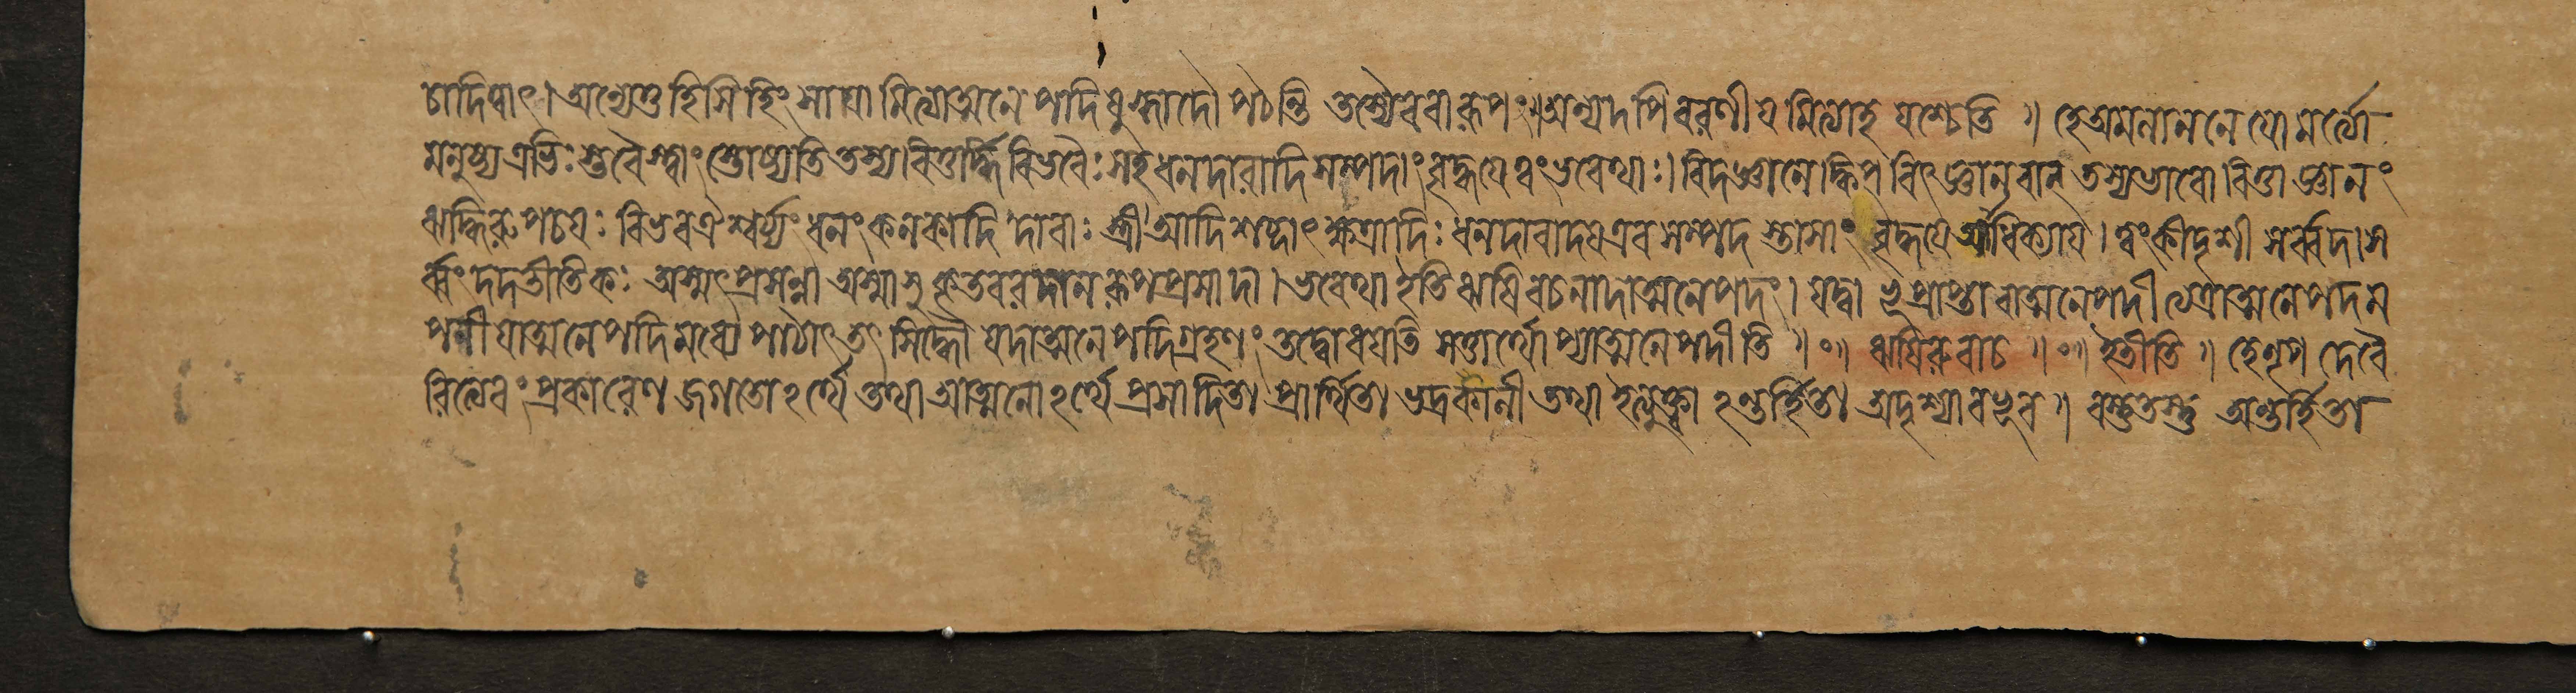 চাদিত্বাৎ। অন্যেতু হিসি হিং সাযা মিত্যাত্মনে পদিষু রুধাদৌ পঠন্তি তস্যৈববা রূপং॥ অন্যদপি বরণীয মিত্যাহ যশ্চেতি ॥ হে অমলাননে যো মর্ত্ত্যো
মনুষ্য এভিঃ স্তবৈ স্ত্বাং স্তোষ্যতি তস্য। বিত্তর্দ্ধি বিভবৈঃ সহ ধনদারাদি সম্পদাং বৃদ্ধযে ত্বং ভবেথাঃ। বিদ জ্ঞানে ক্বিপ্ বিৎ জ্ঞানবান তস্যভাবো বিত্তা জ্ঞানং
ঋদ্ধিরুপচযঃ বিভব ঐশ্বর্য্যং ধনং কনকাদি দারাঃ স্ত্রী আদি শব্দাৎ ক্ষেত্রাদিঃ ধনদারাদয এব সম্পদ স্তাসাং বৃদ্ধযে আধিক্যায। ত্বং কীদৃশী সর্ব্বদা স
র্ব্বং দদতীতি কঃ অস্মৎ প্রসন্না অস্মাসু কৃতবরদান রূপ প্রসাদা। ভবেথা ইতি ঋষি বচনাদাত্মনে পদং। যদ্বা ভূপ্রাপ্তাবাত্মনেপদী ত্যত্রাত্মনে পদম
পনীযাত্মনেপদি মধ্যে পাঠাৎ তৎ সিদ্ধৌ যদাত্মনে পদি গ্রহণং তদ্বোধযতি সত্তার্থো প্যাত্মনে পদীতি ॥০॥ ঋষিরুবাচ ॥০॥ ইতীতি ॥ হে নৃপ দেবৈ
রিত্যেবং প্রকারেণ জগতোঽর্থে তথা আত্মনোঽর্থে প্রসাদিতা প্রার্থিতা ভদ্রকালী তথা ইত্যুক্ত্বা ঽন্তর্হিতা অদৃশ্যা বভূব ॥ বস্তুতস্তু অন্তর্হিতা